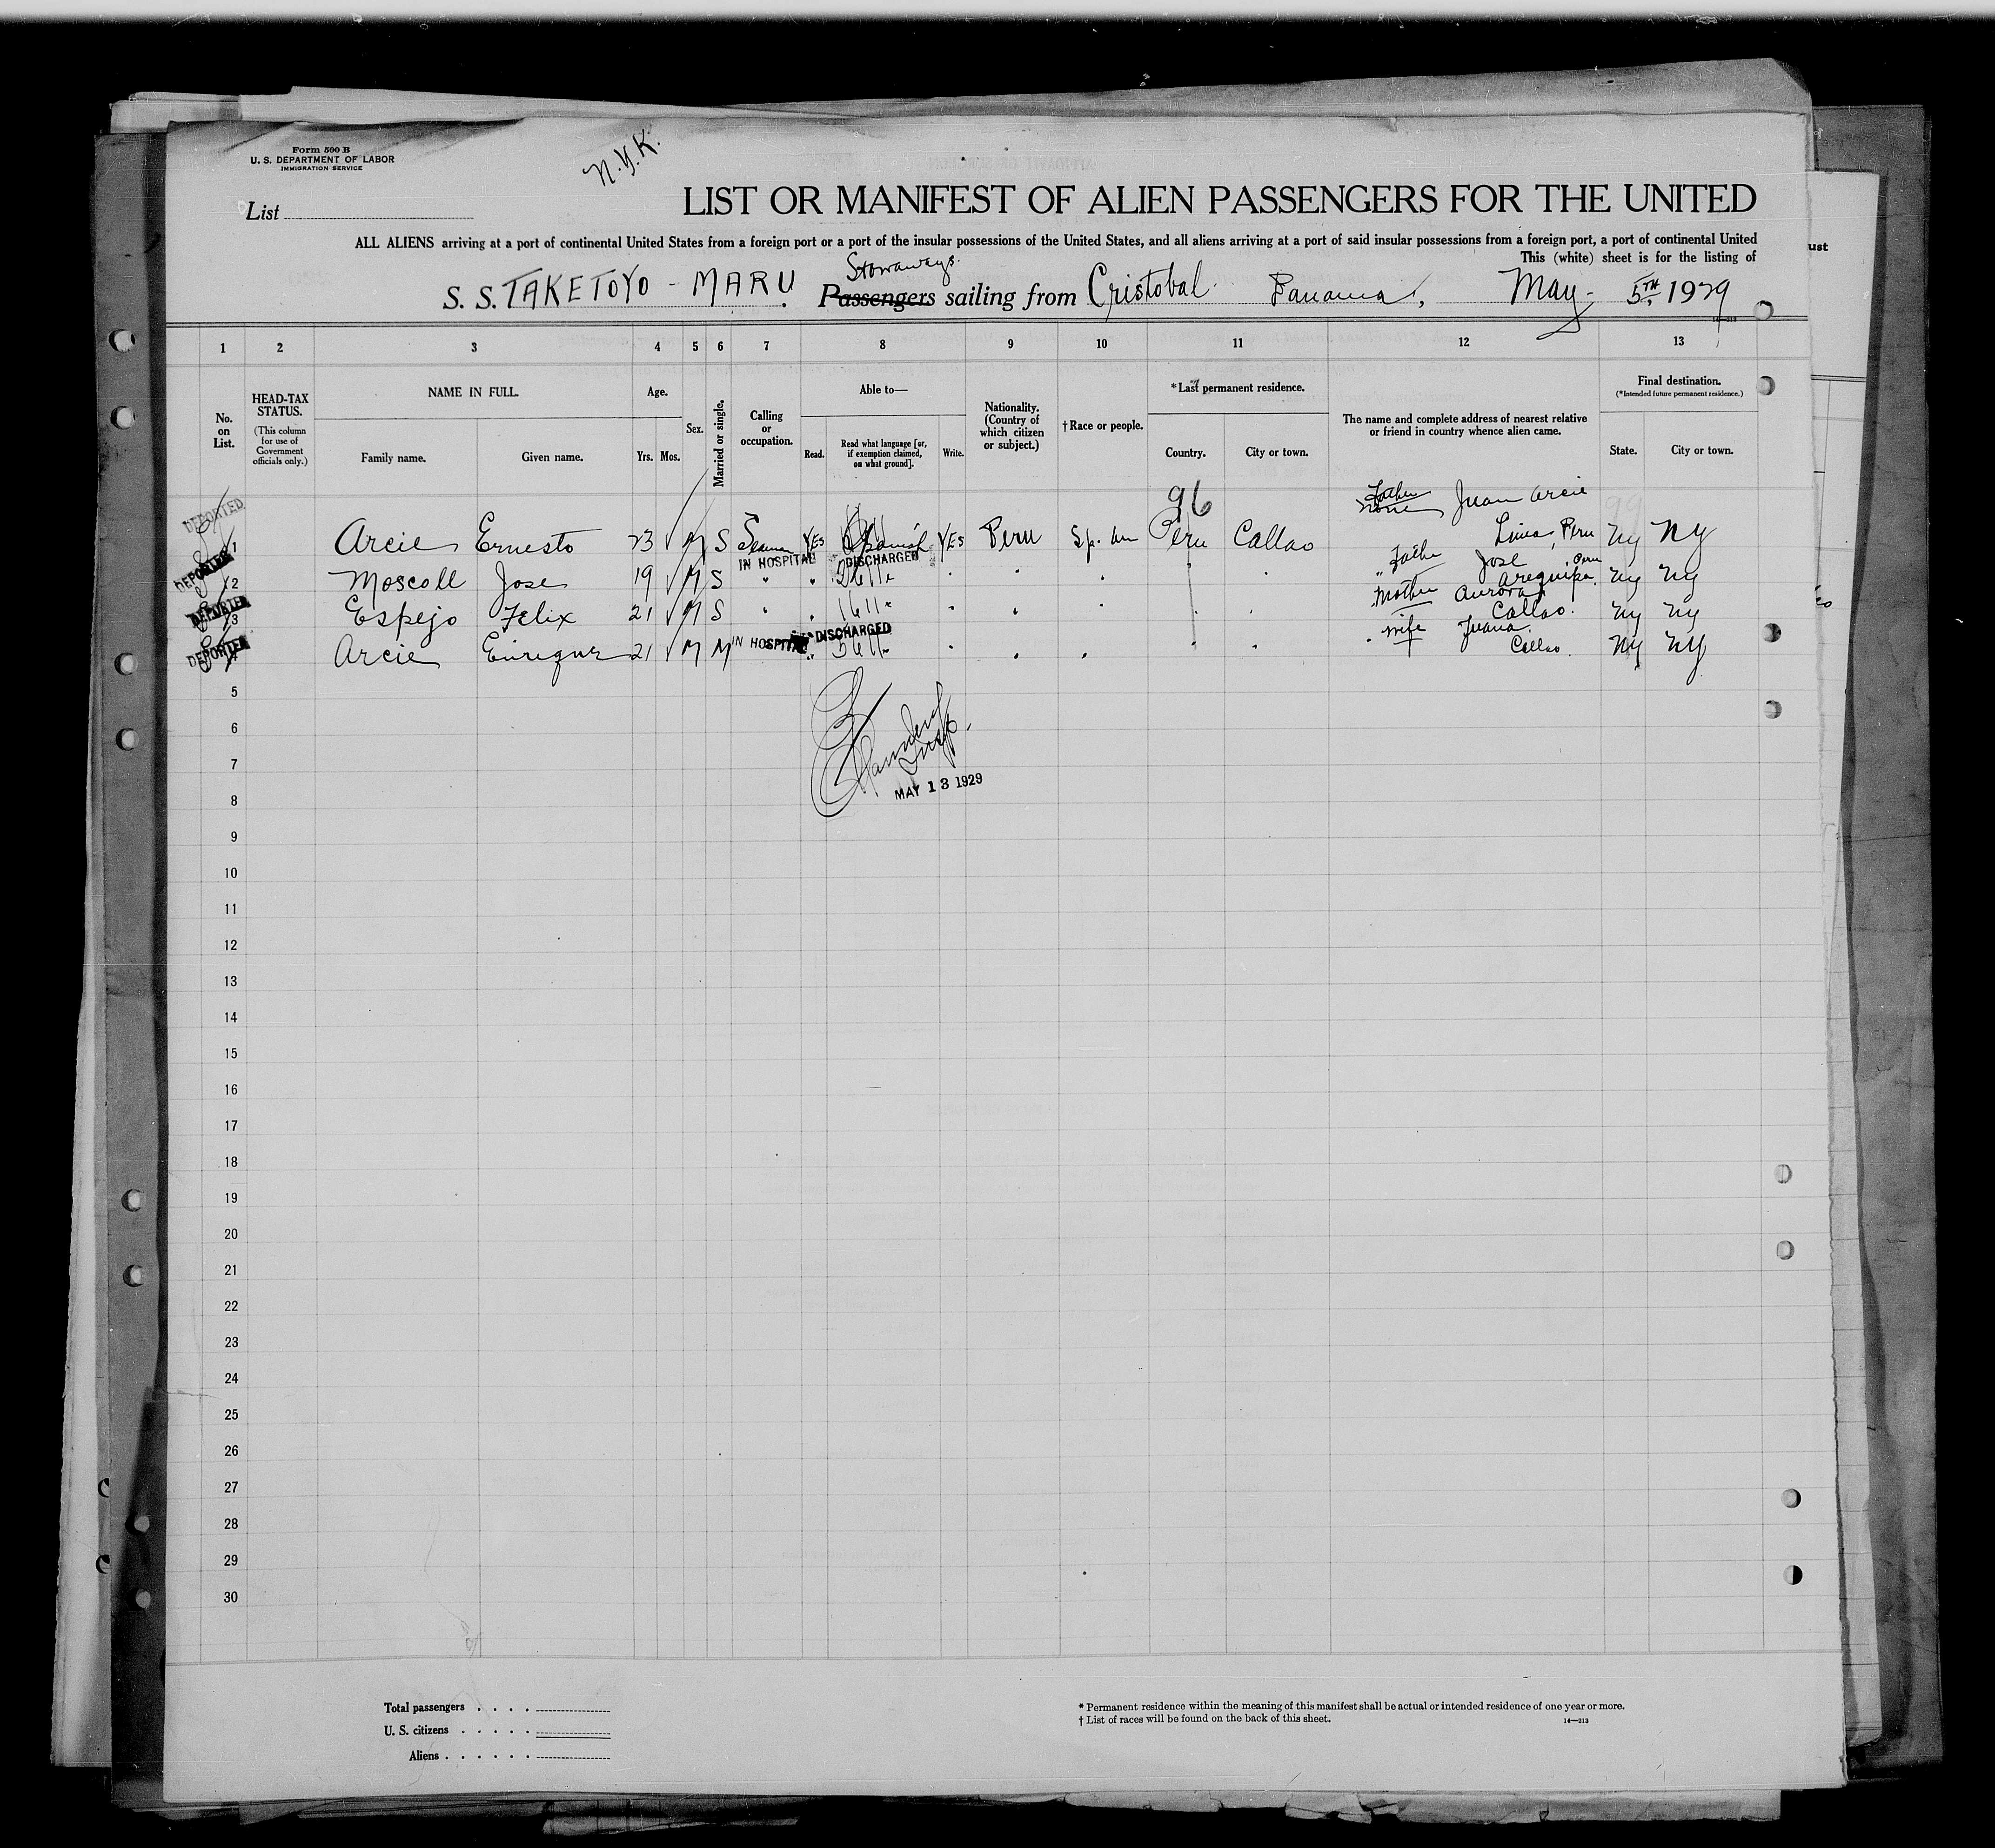 Form 500 B
U. S. DEPARTMENT OF LABOR
IMMIGRATION SERVICE
N.Y.K.
List
LIST OR MANIFEST OF ALIEN PASSENGERS FOR THE UNITED
ALL ALIENS arriving at a port of continental United States from a foreign port or a port of the insular possessions of the United States, and all aliens arriving at a port of said insular possessions from a foreign port, a port of continental United
This (white) sheet is for the listing of
Stowaways.
S. S. TAKETOYO - MARU. Passengers sailing from Cristobal. Panama, May - 5TH, 1929
1 2 3 4 5 6 7 8 9 10 11 12 13
No. on List.
HEAD-TAX STATUS.
(This column for use of Government officials only.)
NAME IN FULL.
Family name. Given name.
Age.
Yrs. Mos.
Sex.
Married or single.
Calling or occupation.
Able to—
Read. Read what language [or, if exemption claimed, on what ground]. Write.
Nationality. (Country of which citizen or subject.)
† Race or people.
* Last permanent residence.
Country. City or town.
The name and complete address of nearest relative or friend in country whence alien came.
Final destination.
(* Intended future permanent residence.)
State. City or town.
96
DEPORTED
1 Arcie Ernesto 23 M S Seaman YES Spanish YES Peru Sp. Am Peru Callao Father none Juan Arcie Lima, Peru NY NY
IN HOSPITAL DISCHARGED
DEPORTED
2 Moscoll Jose 19 M S " " Father Jose Arequipa, Peru NY NY
DEPORTED
3 Espejo Felix 21 M S " Mother Aurora Callao. NY NY
IN HOSPITAL DISCHARGED
DEPORTED
Arcie Enrique 21 M M wife Juana. Callao. NY NY
5
6
7
Insp.
MAY 13 1929
8
9
10
11
12
13
14
15
16
17
18
19
20
21
22
23
24
25
26
27
28
29
30
Total passengers
U. S. citizens
Aliens
* Permanent residence within the meaning of this manifest shall be actual or intended residence of one year or more.
† List of races will be found on the back of this sheet.
14—213